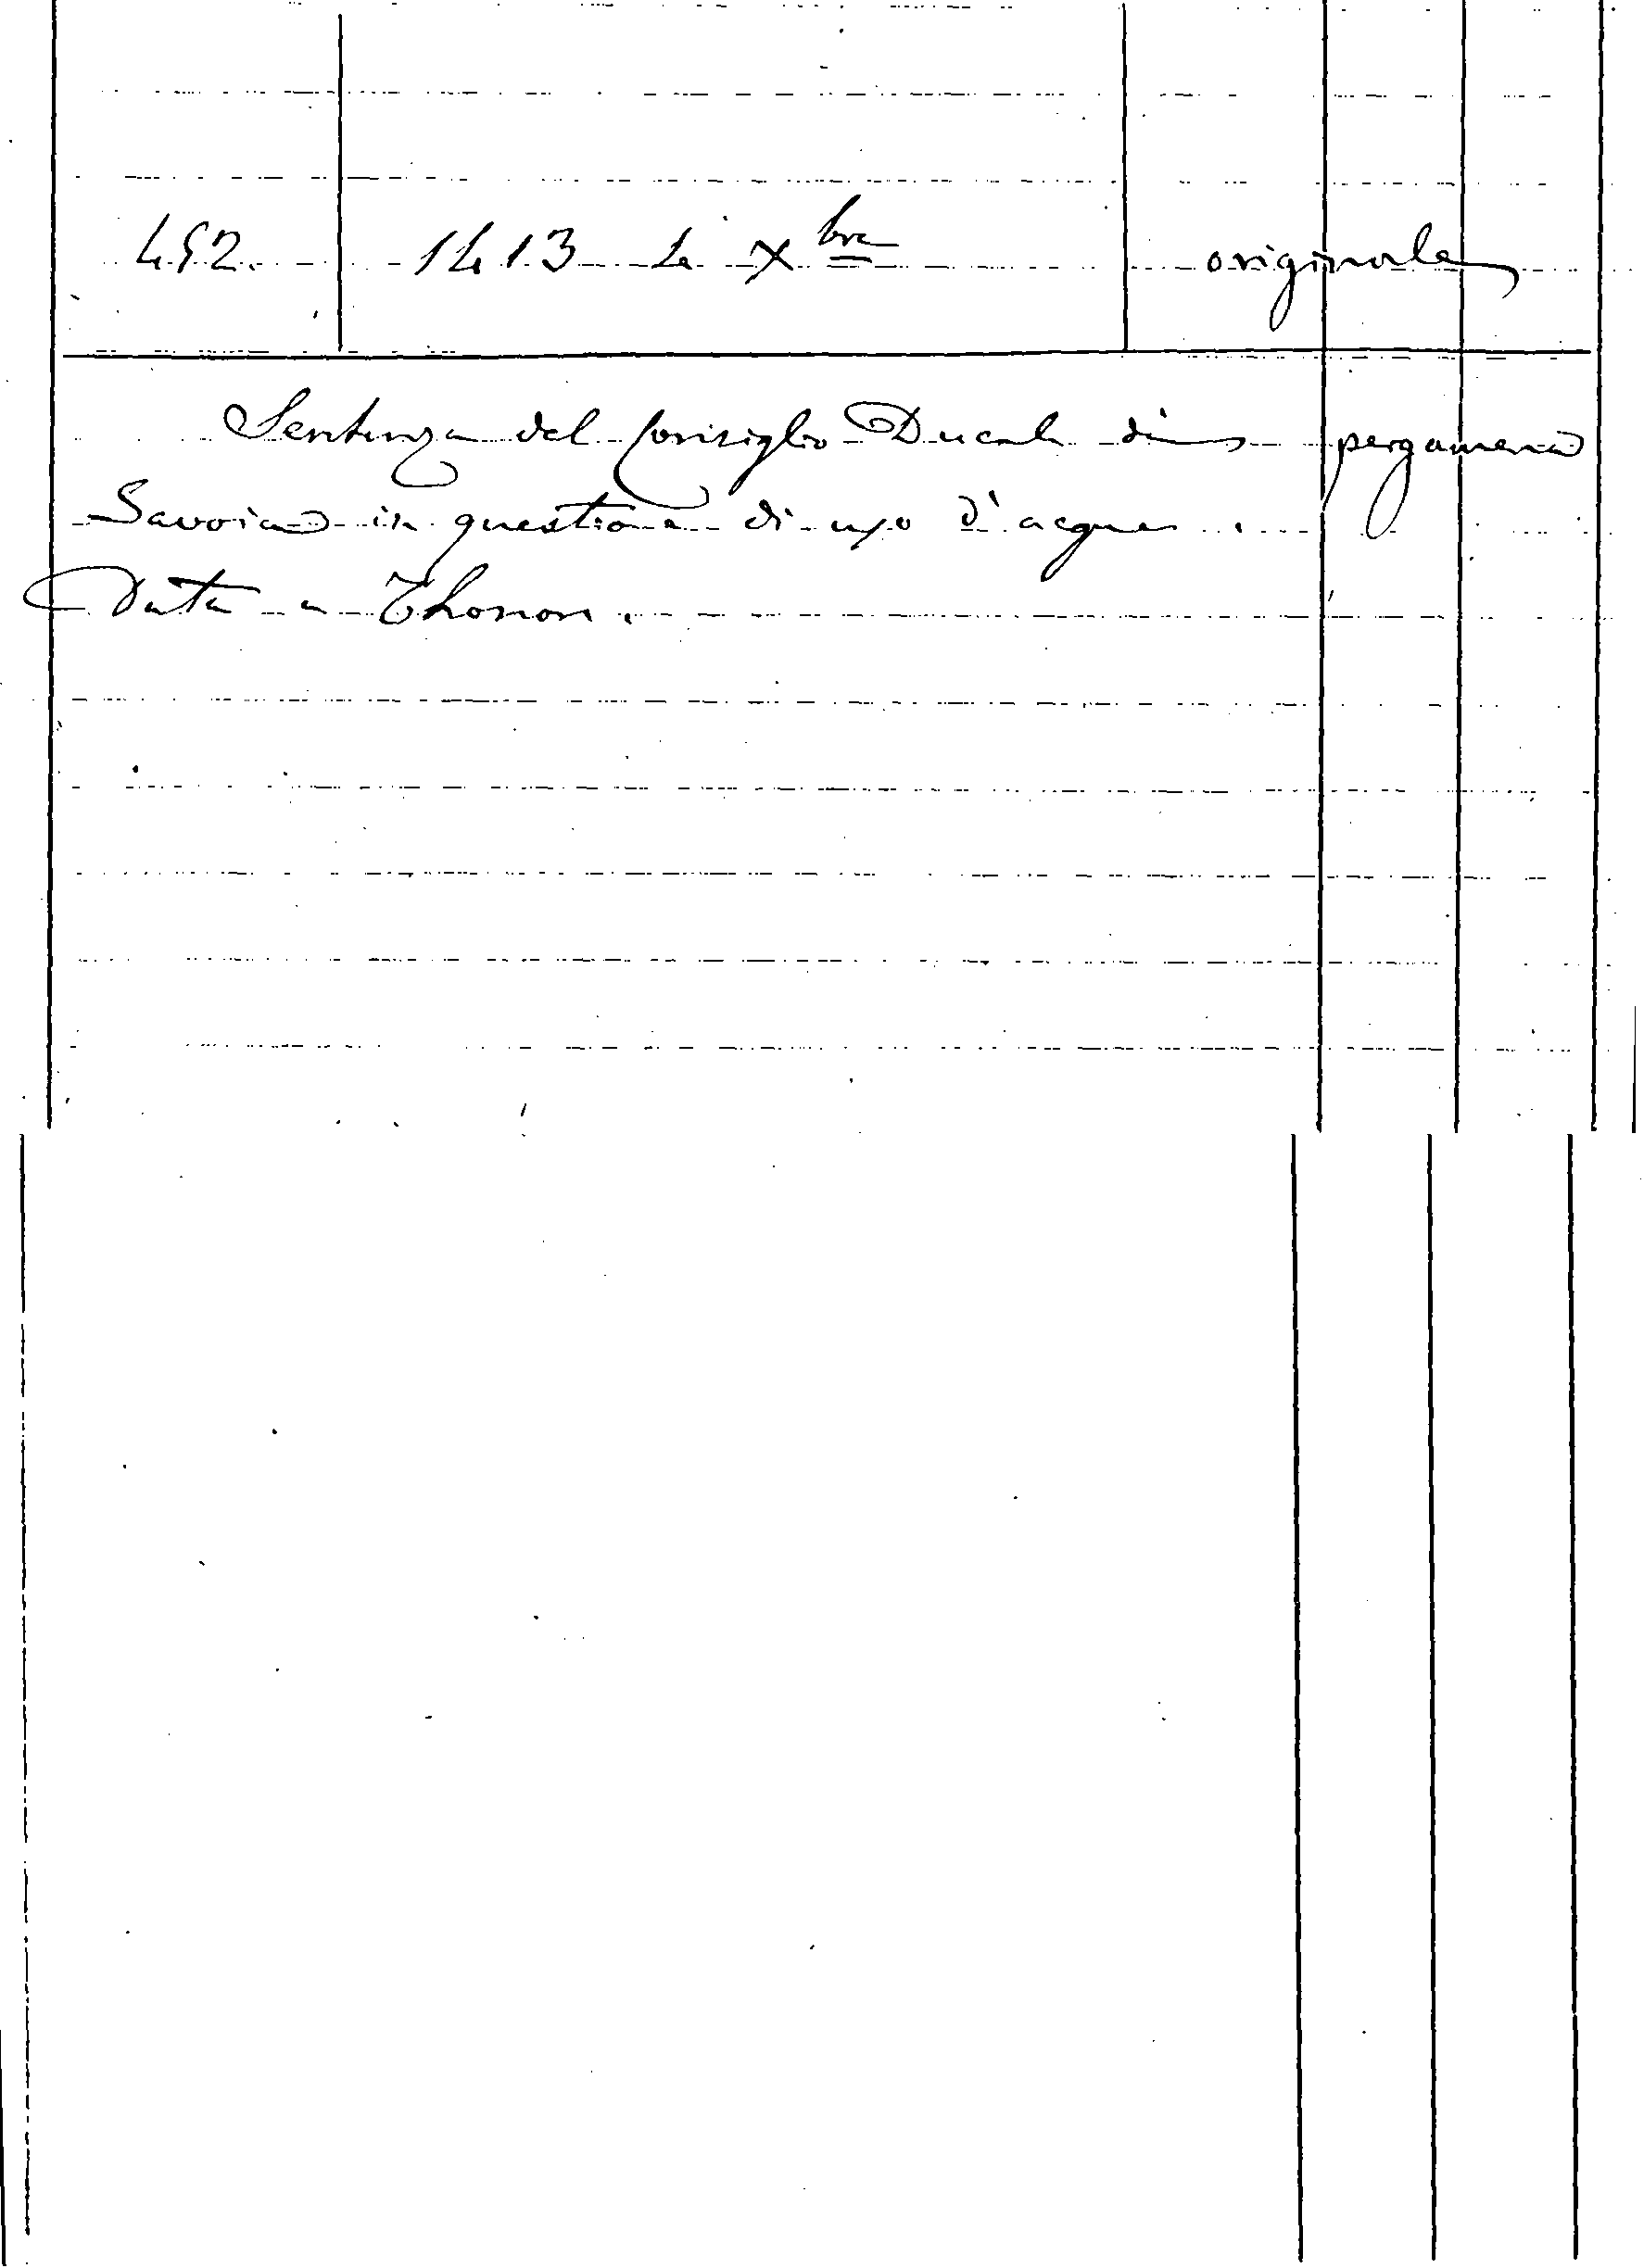 452. 1413 4 Xbre originale
Sentenza del Consiglio Ducale di pergamena
Savoia in questione di uso d'acque.
Data a Thonon.